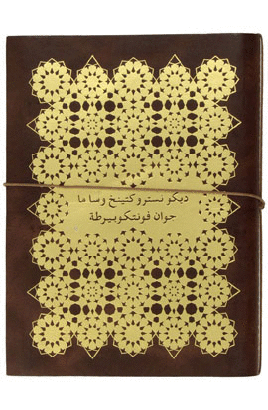 ديكو نسترو كتينخ وساما
جوان فونتكوبيرطة